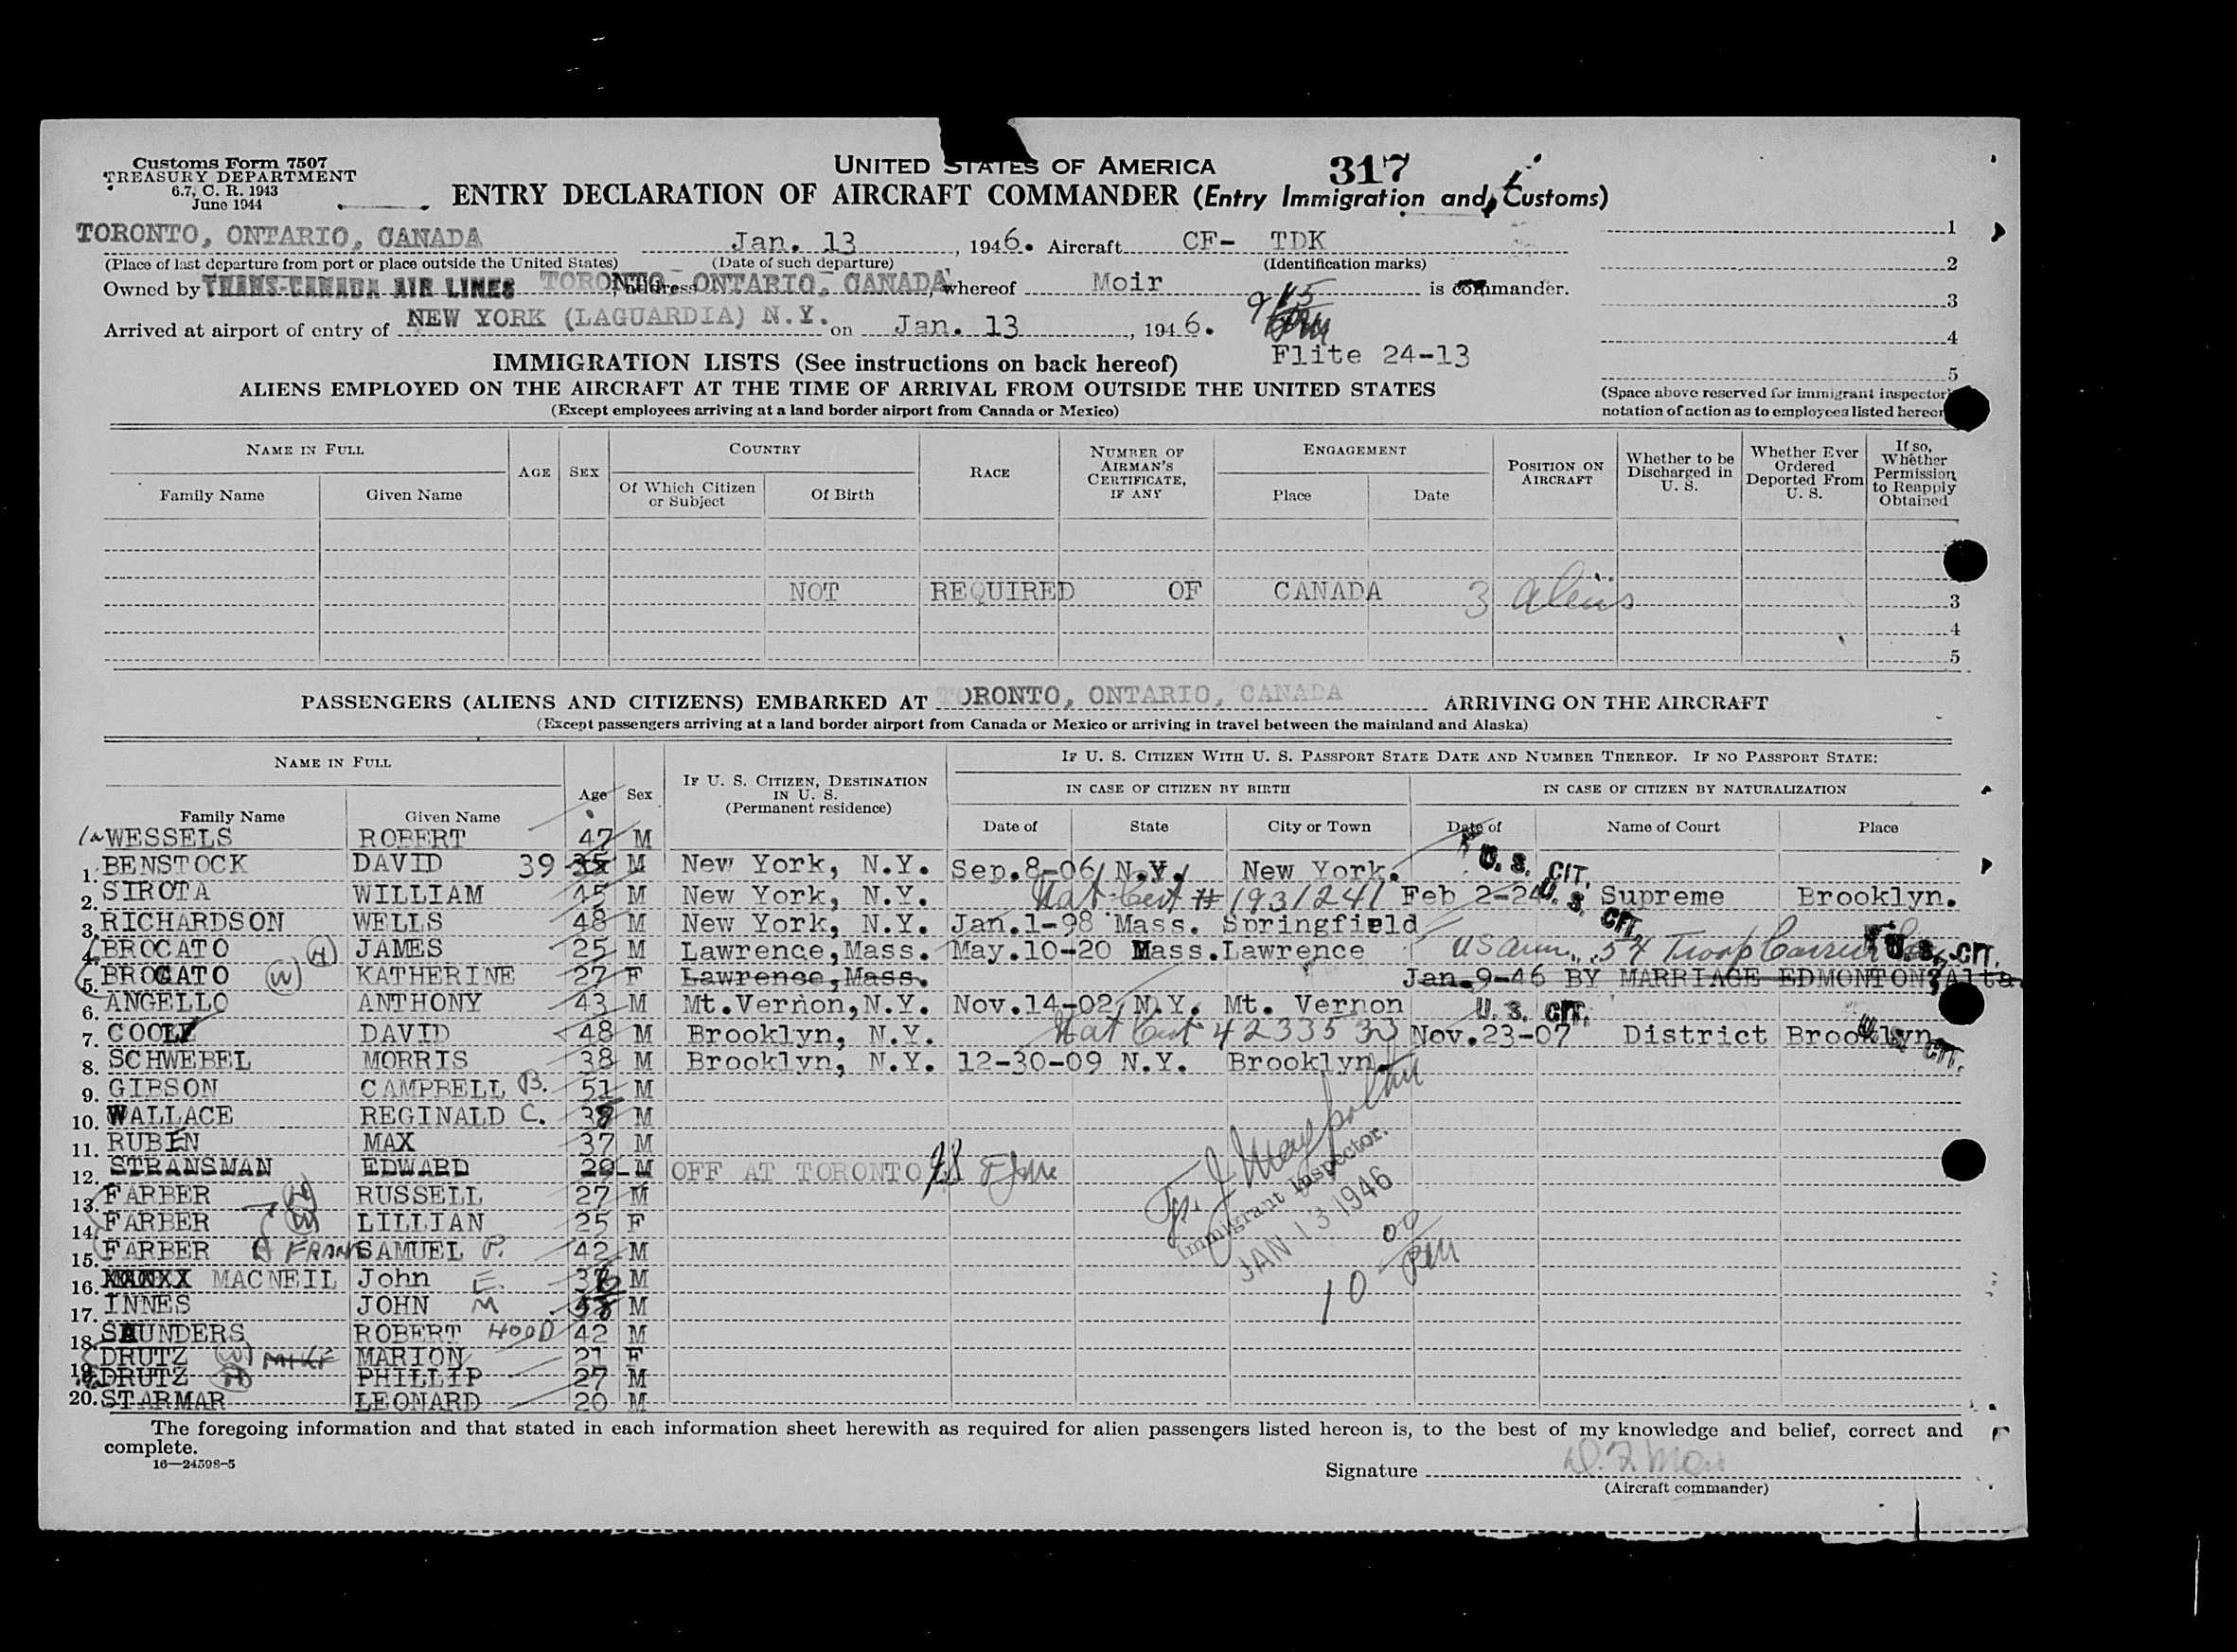 Customs Form 7507
TREASURY DEPARTMENT
6.7, C. R. 1943
June 1944
UNITED STATES OF AMERICA
317
ENTRY DECLARATION OF AIRCRAFT COMMANDER (Entry Immigration and Customs)
TORONTO, ONTARIO, CANADA Jan. 13, 1946. Aircraft CF- TDK
(Place of last departure from port or place outside the United States) (Date of such departure) (Identification marks)
Owned by TRANS-CANADA AIR LINES, address TORONTO, ONTARIO, CANADA, whereof Moir is commander.
Arrived at airport of entry of NEW YORK (LAGUARDIA) N.Y. on Jan. 13, 1946.
Flite 24-13
1
2
3
4
5
(Space above reserved for immigrant inspector
notation of action as to employees listed hereon
IMMIGRATION LISTS (See instructions on back hereof)
ALIENS EMPLOYED ON THE AIRCRAFT AT THE TIME OF ARRIVAL FROM OUTSIDE THE UNITED STATES
(Except employees arriving at a land border airport from Canada or Mexico)
NAME IN FULL
Family Name Given Name
AGE
SEX
COUNTRY
Of Which Citizen or Subject
Of Birth
RACE
NUMBER OF AIRMAN'S CERTIFICATE, IF ANY
ENGAGEMENT
Place Date
POSITION ON AIRCRAFT
Whether to be Discharged in U. S.
Whether Ever Ordered Deported From U. S.
If so, Whether Permission to Reapply Obtained
NOT REQUIRED OF CANADA 3 aliens 3
4
5
PASSENGERS (ALIENS AND CITIZENS) EMBARKED AT TORONTO, ONTARIO, CANADA ARRIVING ON THE AIRCRAFT
(Except passengers arriving at a land border airport from Canada or Mexico or arriving in travel between the mainland and Alaska)
NAME IN FULL
Family Name Given Name
Age Sex
IF U. S. CITIZEN, DESTINATION IN U. S.
(Permanent residence)
IF U. S. CITIZEN WITH U. S. PASSPORT STATE DATE AND NUMBER THEREOF. IF NO PASSPORT STATE:
IN CASE OF CITIZEN BY BIRTH
IN CASE OF CITIZEN BY NATURALIZATION
Date of State City or Town Date of Name of Court Place
WESSELS ROBERT 47 M
1. BENSTOCK DAVID 39 35 M New York, N.Y. Sep.8-06 N.Y. New York. U. S. CIT.
2. SIROTA WILLIAM 45 M New York, N.Y. Nat Cert # 1931241 Feb 2-24 U. S. CIT. Supreme Brooklyn.
3. RICHARDSON WELLS 48 M New York, N.Y. Jan.1-98 Mass. Springfield
4. BROCATO (H) JAMES 25 M Lawrence,Mass. May.10-20 Mass. Lawrence 54 Troop Carrier U. S. CIT.
5. BROCATO (W) KATHERINE 27 F Lawrence,Mass. Jan.9-46 BY MARRIAGE EDMONTON, Alta.
6. ANGELLO ANTHONY 43 M Mt.Vernon,N.Y. Nov.14-02 N.Y. Mt. Vernon U. S. CIT.
7. DAVID 48 M Brooklyn, N.Y. Nat Cert Nov.23-07 District Brooklyn
8. SCHWEBEL MORRIS 38 M Brooklyn, N.Y. 12-30-09 N.Y. Brooklyn. CIT.
9. GIBSON CAMPBELL B. 51 M
10. WALLACE REGINALD C. 38 M
11. RUBEN MAX 37 M
12. STRANSMAN EDWARD 29 M OFF AT TORONTO
13. FARBER (H) RUSSELL 27 M
14. FARBER (W) LILLIAN 25 F
15. FARBER SAMUEL P. 42 M
16. MACNEIL John E. M
17. INNES JOHN M M
18. SAUNDERS ROBERT HOOD 42 M
DRUTZ (W) MIKE MARION 21 F
19. DRUTZ (H) PHILLIP 27 M
20. STARMAR LEONARD 20 M
Immigrant Inspector.
JAN 13 1946
10 00 PM
The foregoing information and that stated in each information sheet herewith as required for alien passengers listed hereon is, to the best of my knowledge and belief, correct and
complete.
16—24598-5
Signature D.F. Moir
(Aircraft commander)